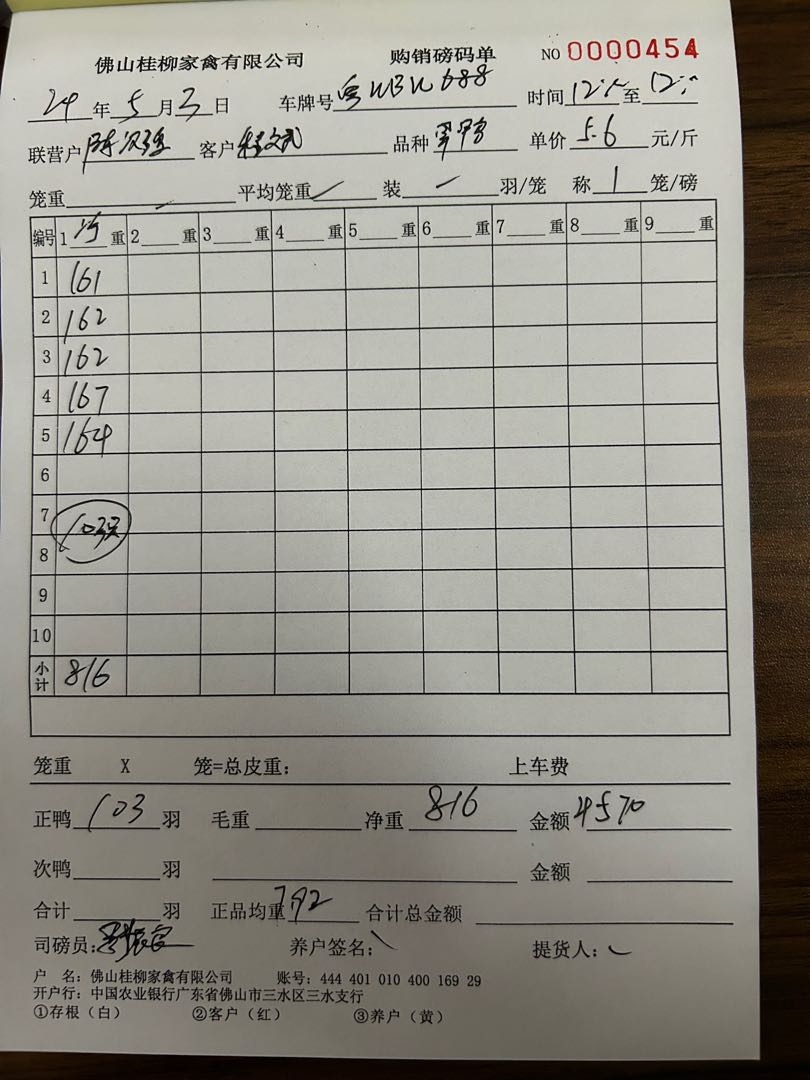 佛山桂柳家禽有限公司 购销磅码单 NO 0000454
24年5月3日 车牌号 688 时间12: 至12:
联营户 客户 文武 品种 单价5.6元/斤
笼重 — 平均笼重 / 装 — 羽/笼 称 1 笼/磅
编号 1 净 重 2 重 3 重 4 重 5 重 6 重 7 重 8 重 9 重
1 161
2 162
3 162
4 167
5 164
6
7 103只
8
9
10
小计 816
笼重 X 笼=总皮重: 上车费
正鸭 103 羽 毛重 净重 816 金额 4570
次鸭 羽 金额
合计 羽 正品均重 7.92 合计总金额
司磅员: 养户签名: 提货人:
户 名: 佛山桂柳家禽有限公司 账号: 444 401 010 400 169 29
开户行: 中国农业银行广东省佛山市三水区三水支行
①存根(白) ②客户(红) ③养户(黄)